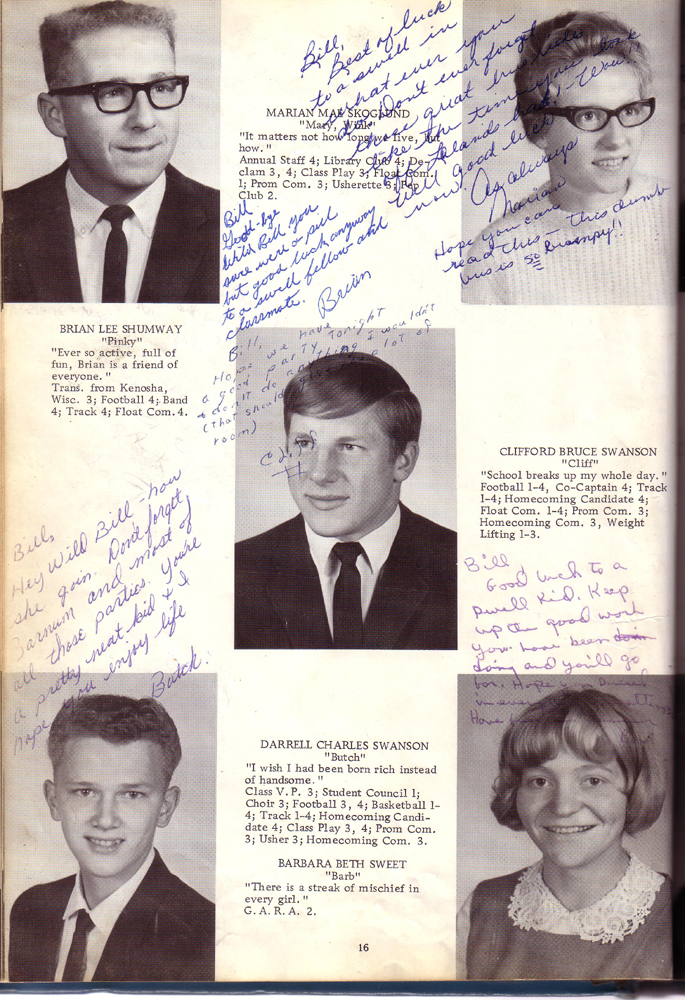 Bill,
Best of luck
to a swell in
what ever you
do. Don't ever forget
those great bus rides
like the time you took
off Leland's hat! - Wow!!
Well good luck
now!
As always
Marian
Hope you can
read this - this dumb
bus is so bumpy!!
MARIAN MAE SKOGLUND
"Mary, Wink"
"It matters not how long we live, but
how."
Annual Staff 4; Library Club 4; De-
clam 3, 4; Class Play 3; Float Com.
1; Prom Com. 3; Usherette 3; Pep
Club 2.
Bill
Good-bye
Wild Bill you
sure were a pill
but good luck anyway
to a swell fellow and
classmate.
Brian
BRIAN LEE SHUMWAY
"Pinky"
"Ever so active, full of
fun, Brian is a friend of
everyone."
Trans. from Kenosha,
Wisc. 3; Football 4; Band
4; Track 4; Float Com. 4.
Bill,
Hope we have
a good party tonight
& don't do anything I wouldn't
(that should give you a lot of
room)
Cliff
CLIFFORD BRUCE SWANSON
"Cliff"
"School breaks up my whole day."
Football 1-4, Co-Captain 4; Track
1-4; Homecoming Candidate 4;
Float Com. 1-4; Prom Com. 3;
Homecoming Com. 3, Weight
Lifting 1-3.
Bill,
Hey Wild Bill - how
she goin. Don't forget
Barnum and most of
all those parties. You're
a pretty neat kid & I
hope you enjoy life
Butch.
Bill
Good luck to a
swell kid. Keep
up the good work
you have been
doing and you'll go
far. Hope
Have
DARRELL CHARLES SWANSON
"Butch"
"I wish I had been born rich instead
of handsome."
Class V.P. 3; Student Council 1;
Choir 3; Football 3, 4; Basketball 1-
4; Track 1-4; Homecoming Candi-
date 4; Class Play 3, 4; Prom Com.
3; Usher 3; Homecoming Com. 3.
BARBARA BETH SWEET
"Barb"
"There is a streak of mischief in
every girl."
G.A.R.A. 2.
16